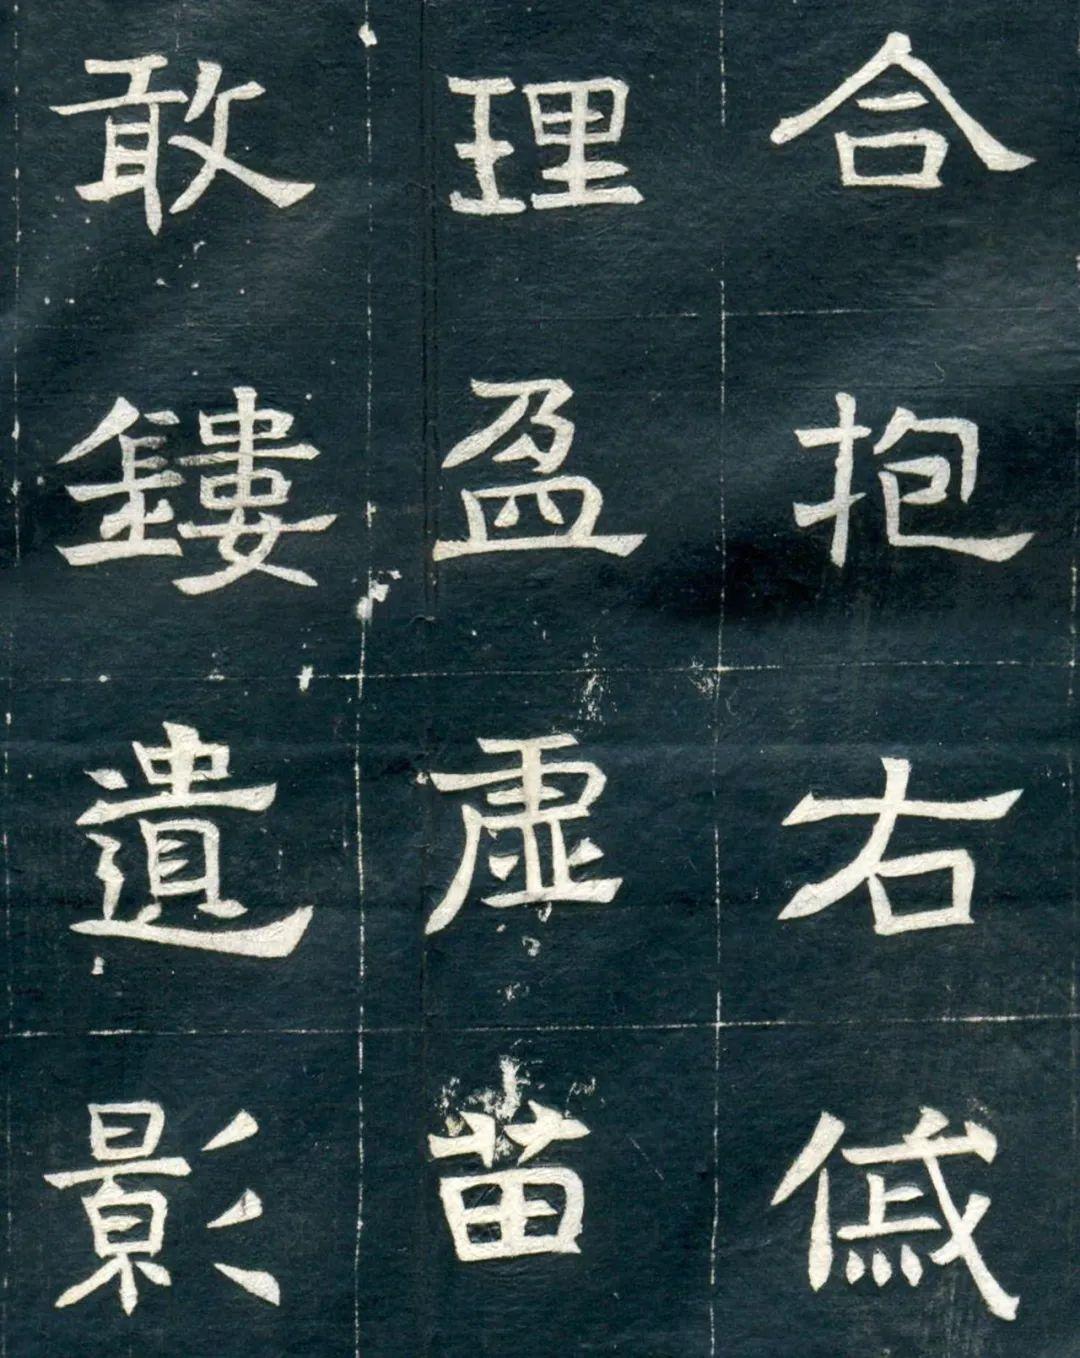 合抱右傶
理盈虛苗
敢鏤遺影